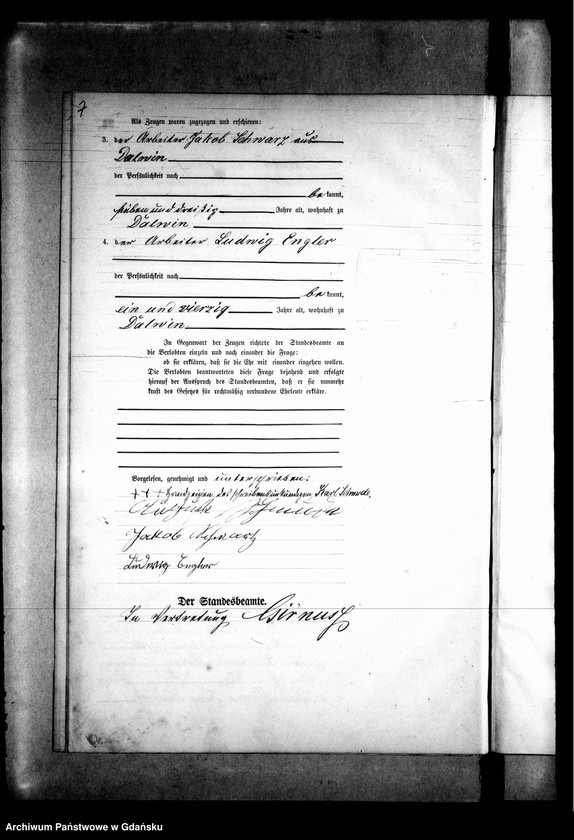 7
Als Zeugen waren zugezogen und erschienen:
3. der Arbeiter Jakob Schwarz aus
Dalwin
der Persönlichkeit nach
be kannt,
sieben und dreißig Jahre alt, wohnhaft zu
Dalwin
4. der Arbeiter Ludwig Engler
der Persönlichkeit nach
be kannt,
ein und vierzig Jahre alt, wohnhaft zu
Dalwin.
In Gegenwart der Zeugen richtete der Standesbeamte an
die Verlobten einzeln und nach einander die Frage:
ob sie erklären, daß sie die Ehe mit einander eingehen wollen.
Die Verlobten beantworteten diese Frage bejahend und erfolgte
hierauf der Ausspruch des Standesbeamten, daß er sie nunmehr
kraft des Gesetzes für rechtmäßig verbundene Eheleute erkläre.
Vorgelesen, genehmigt und unterschrieben.
+++ Handzeichen des schreibensunkundigen Karl
Jakob Schwartz
Ludwig Engler
Der Standesbeamte.
In Vertretung
Archiwum Państwowe w Gdańsku